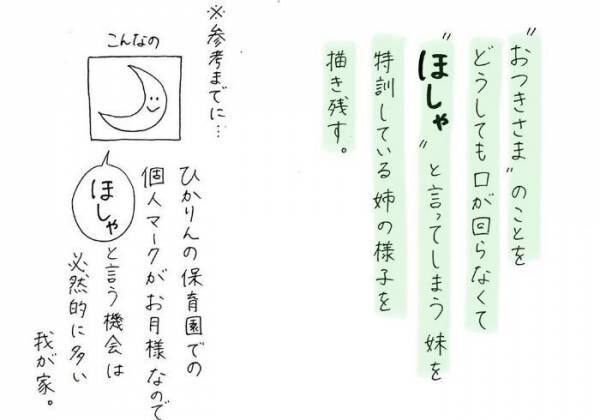 ”おつきさま”のことを
どうしても口が回らなくて
”ほしゃ”と言ってしまう妹を
特訓している姉の様子を
描き残す。
※参考までに…
こんなの
ひかりんの保育園での
個人マークがお月様なので
ほしゃと言う機会は
必然的に多い
我が家。